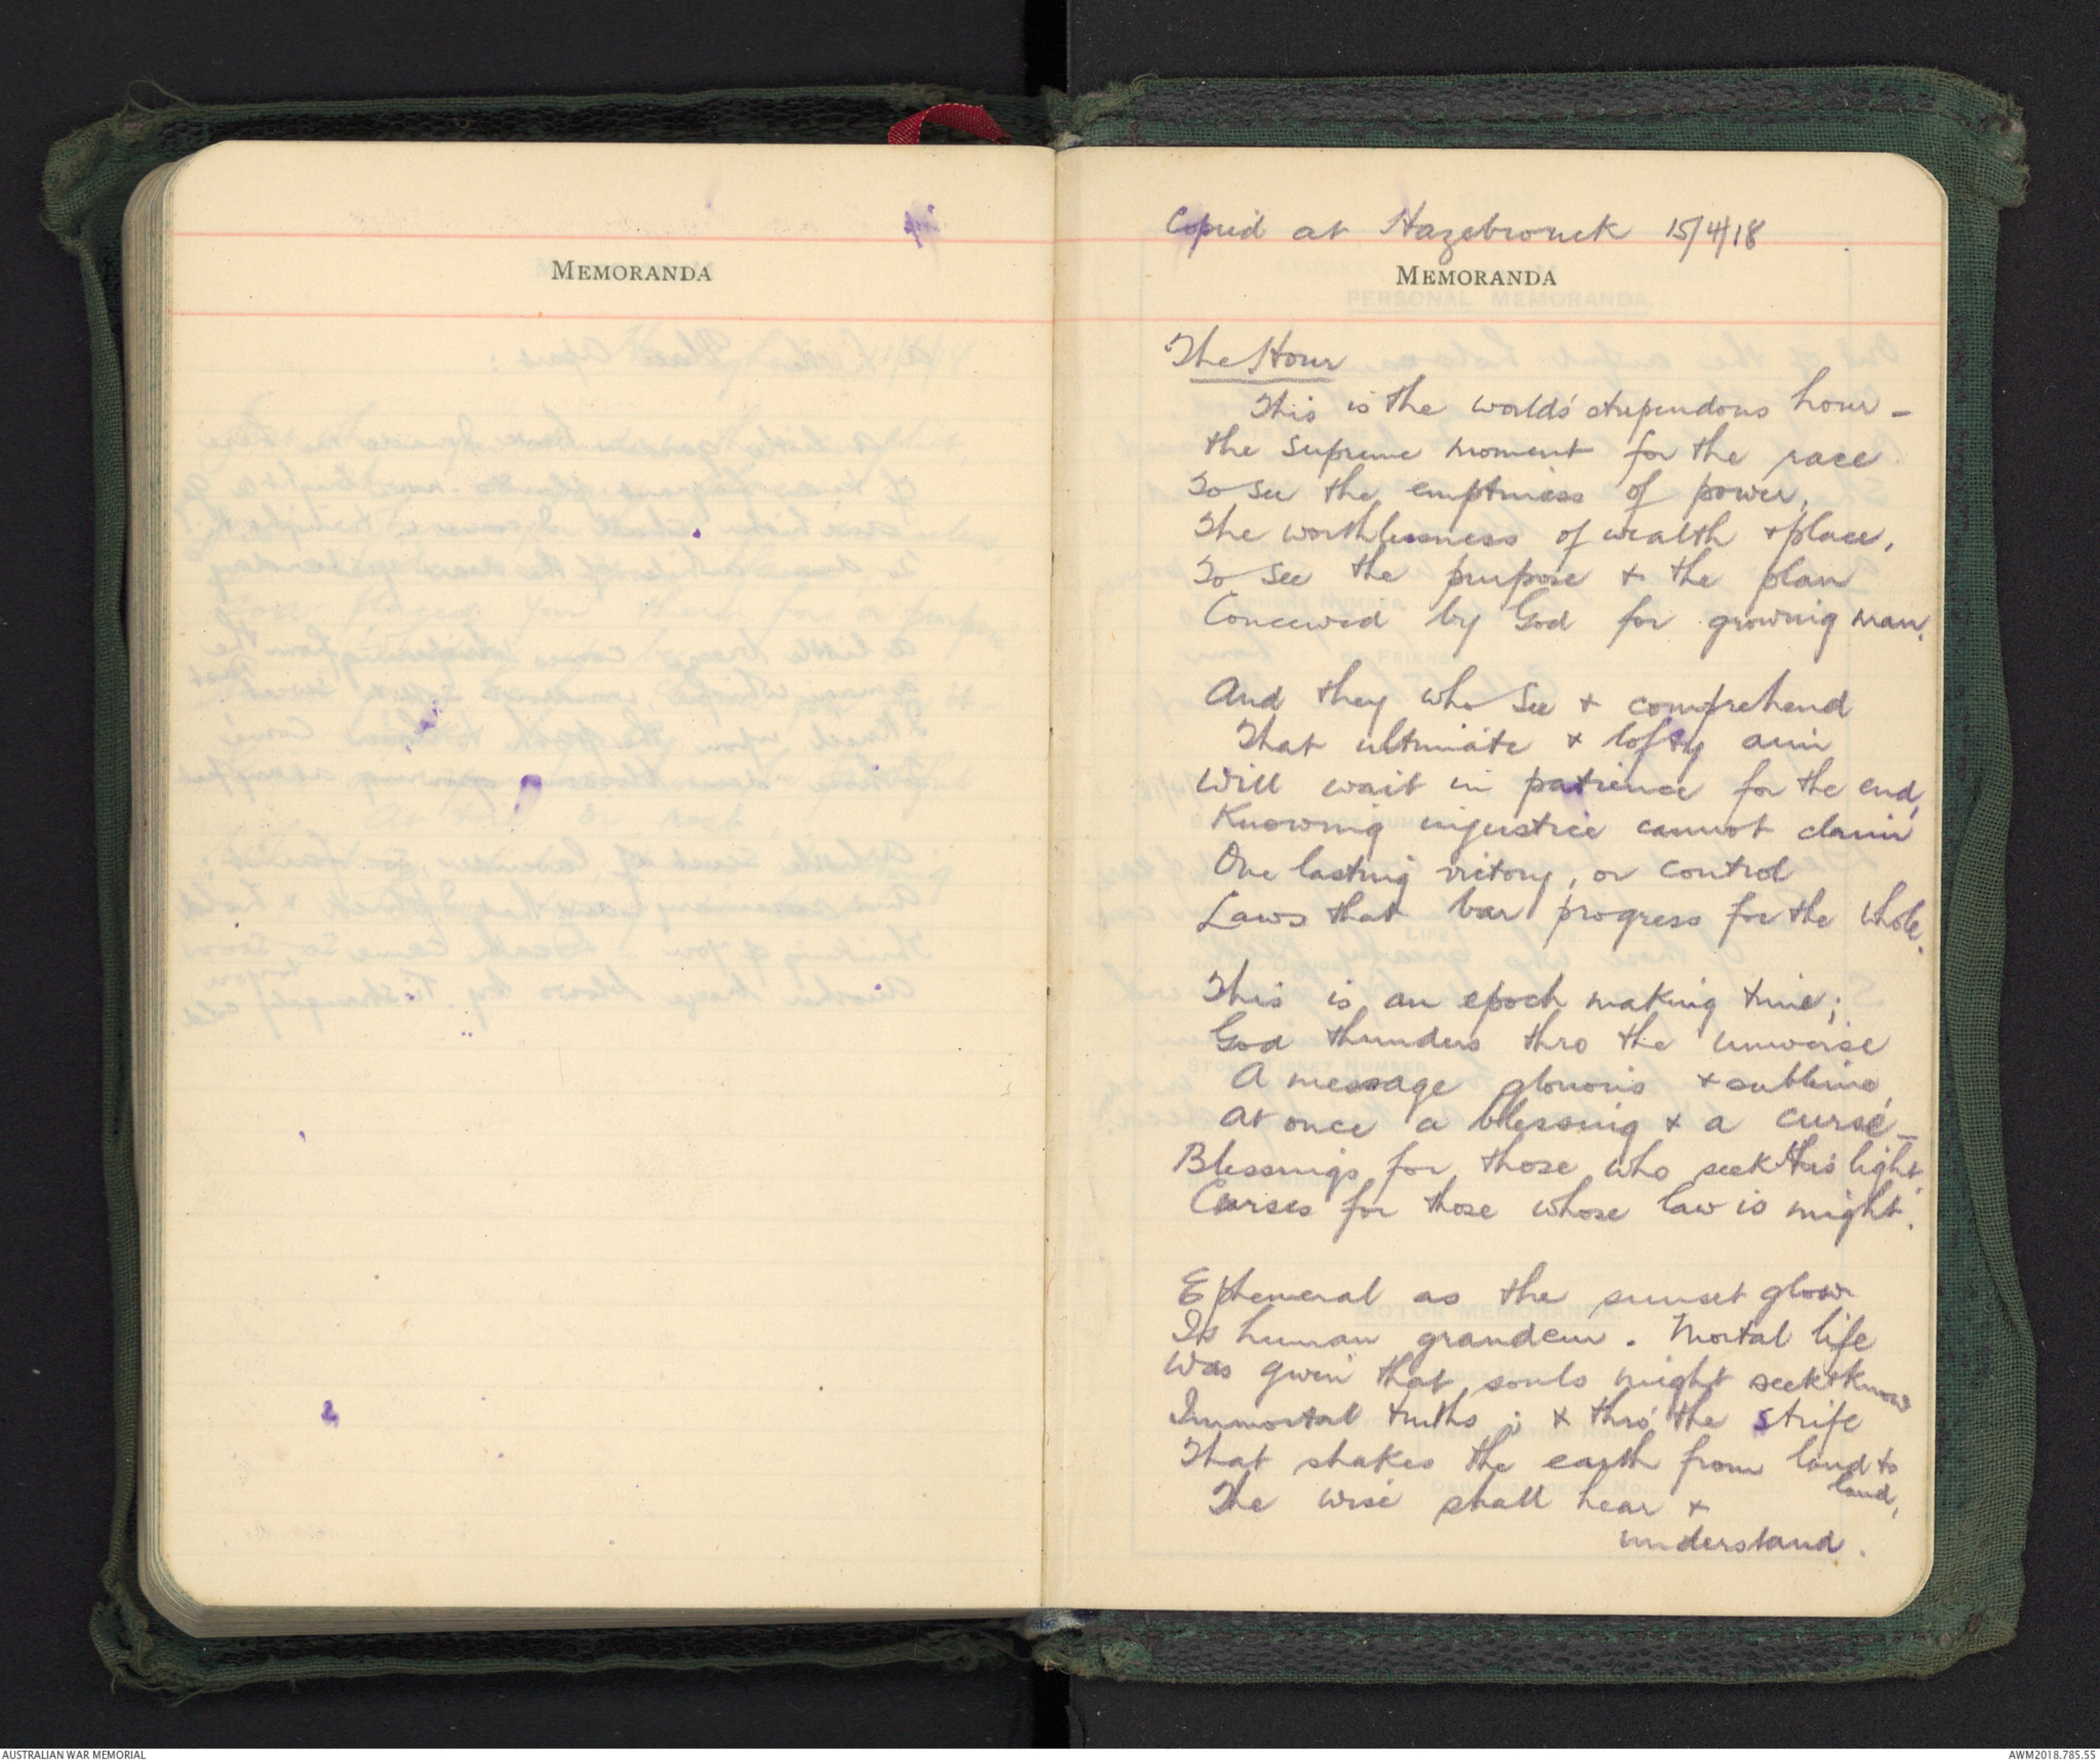 MEMORANDA
Copied at Hazebrouck 15/4/18
MEMORANDA
The Hour
This is the worlds' stupendous hour -
the supreme moment for the race
To see the emptiness of power,
The worthlessness of wealth & place,
To see the purpose & the plan
Conceived by God for growing man.
And they who see & comprehend
That ultimate & lofty aim
Will wait in patience for the end,
Knowing injustice cannot claim
One lasting victory, or control
Laws that bar progress for the whole.
This is an epoch making time;
God thunders thro the universe
A message glorious & sublime,
At once a blessing & a curse -
Blessings for those who seek His light,
Curses for those whose law is might.
Ephemeral as the sunset glow
Is human grandeur. Mortal life
Was given that souls might seek & know
Immortal truths; & thro' the strife
That shakes the earth from land to
land,
The wise shall hear &
understand.
AUSTRALIAN WAR MEMORIAL
AWM2018.785.55